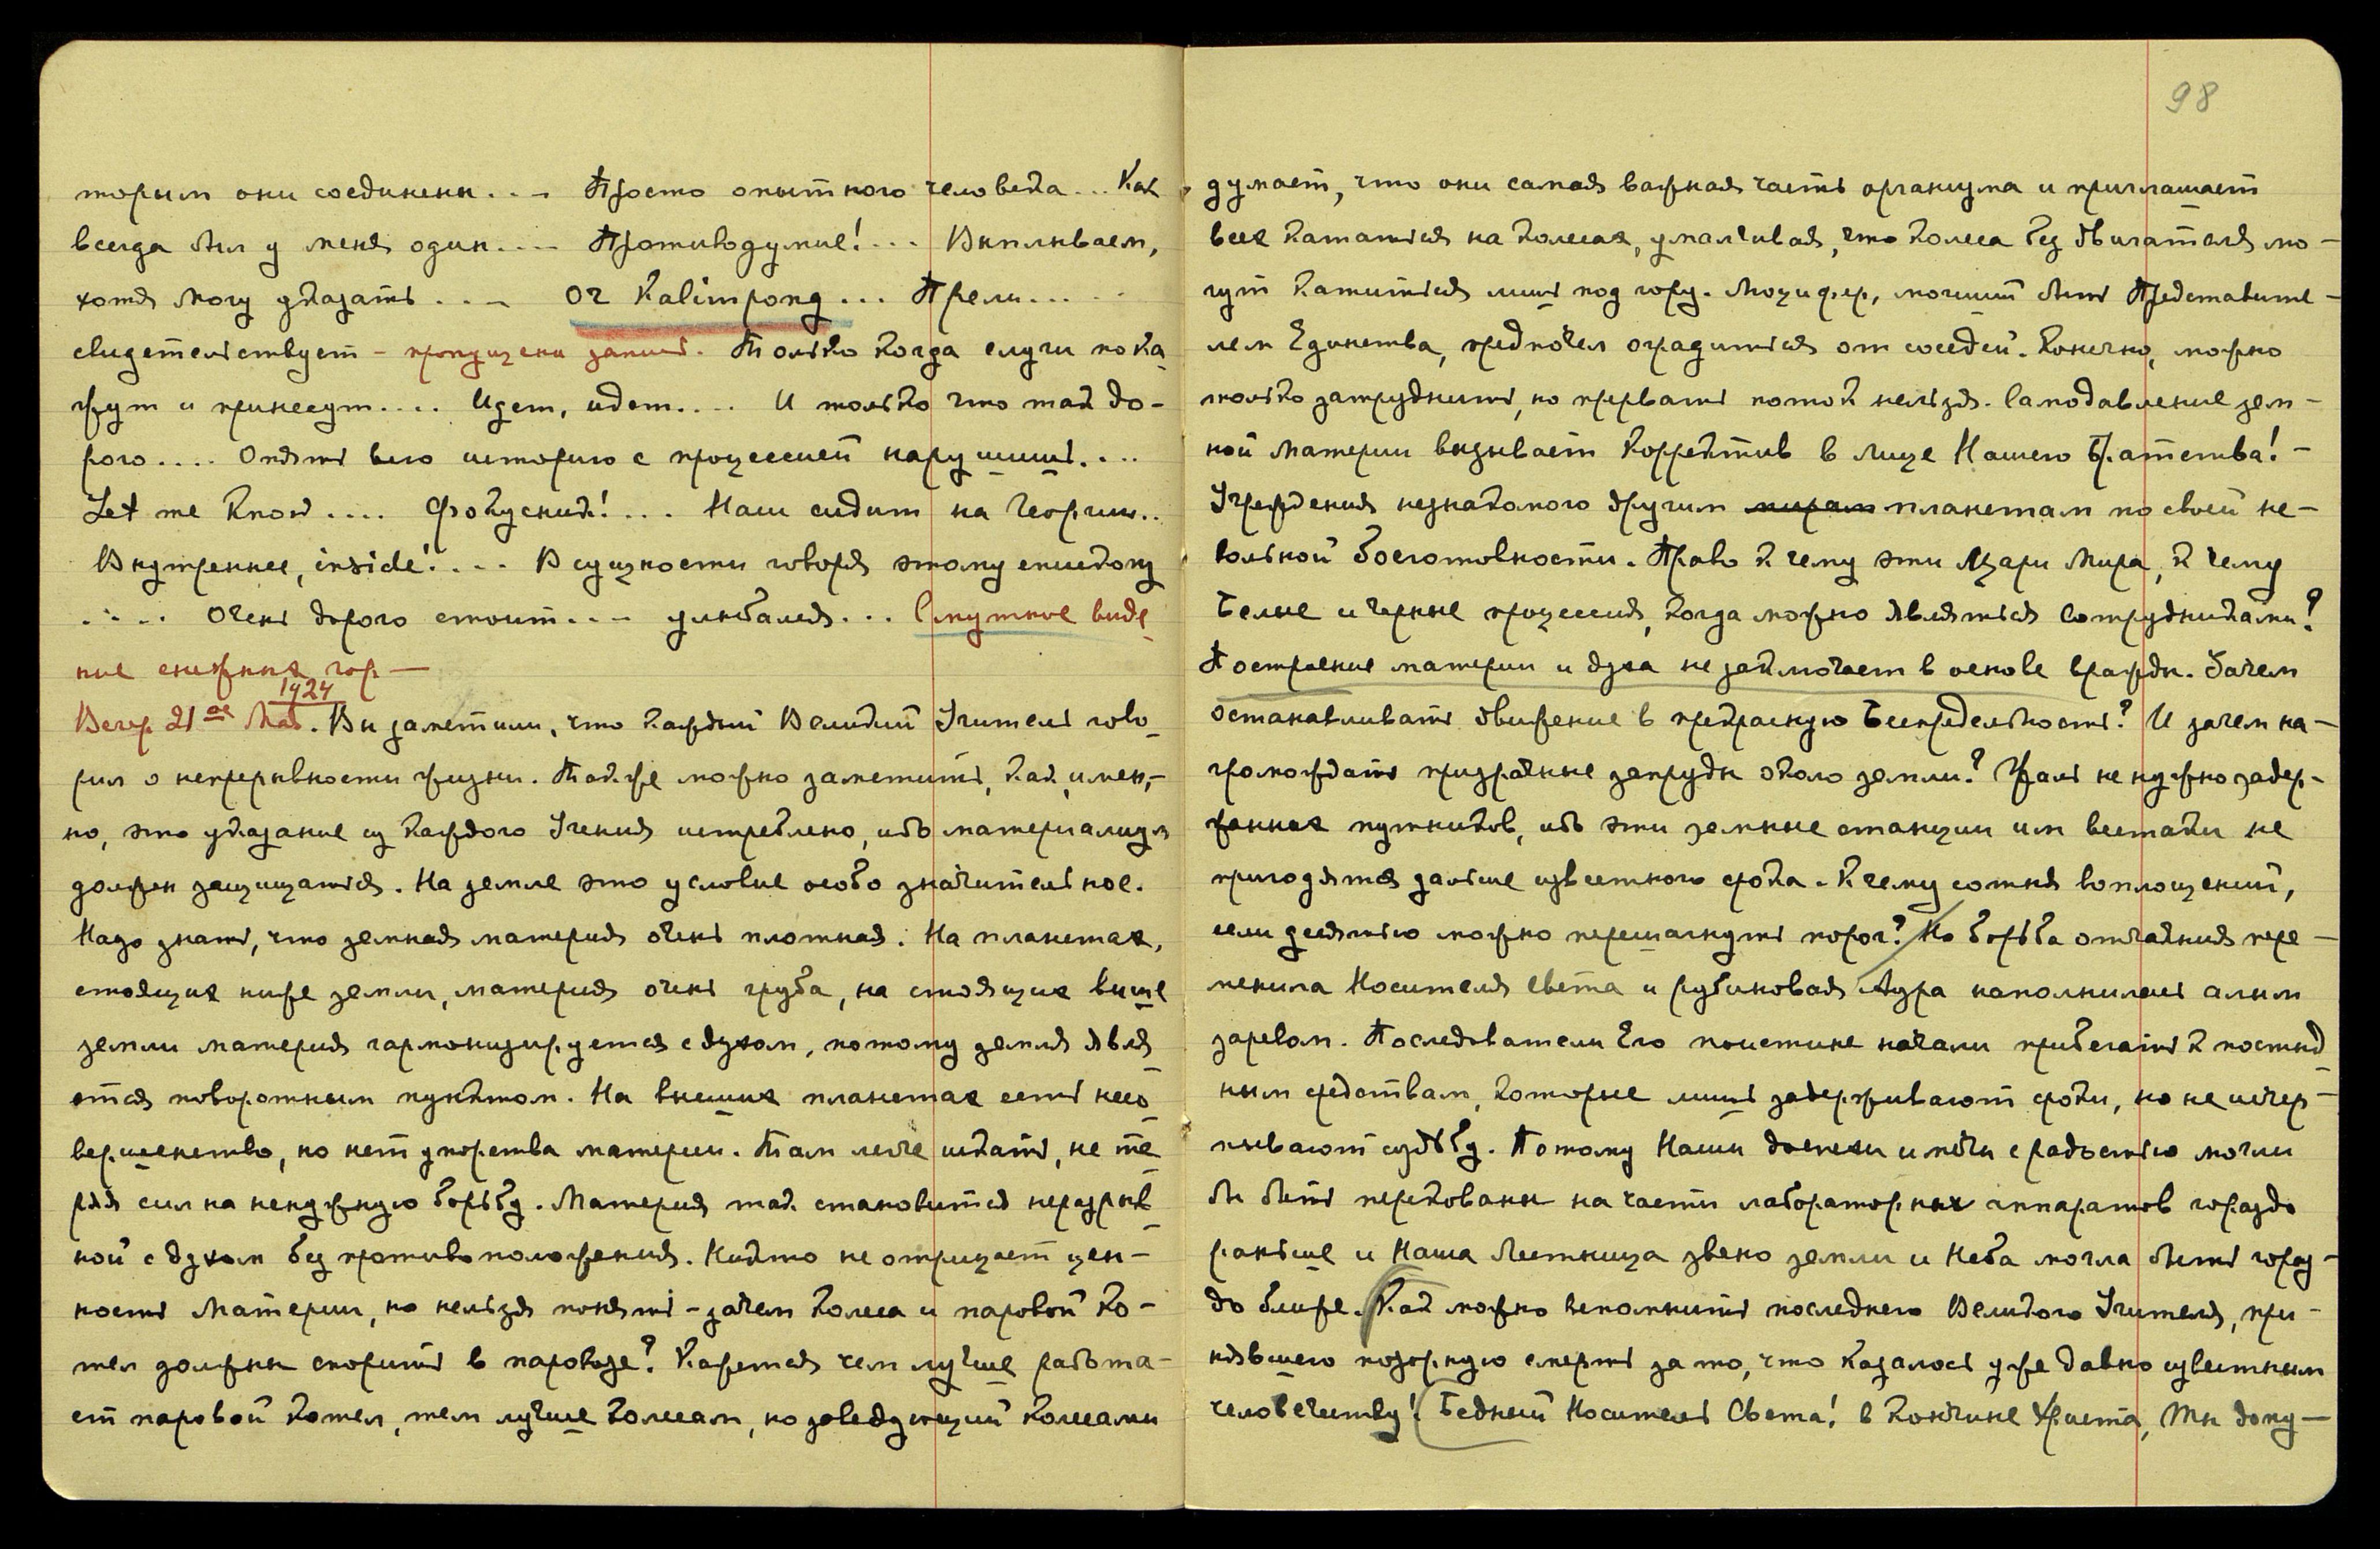 торым они соединены... Просто опытного человека... Как
всегда был у меня один.... Противодумие!... Выплываем,
хотя могу указать.... Or Kalimpong... Прели.....
свидетельствует – пропущены запись. Только когда слуги пока
жут и принесут.... Идет, идет.... И только что так до-
рого.... Опять всю историю с процессией нарушишь....
Let me know.... Фокусник!... Наш сидит на Георгии..
Внутреннее, inside!.... В сущности говоря этому епископу
.... Очень дорого стоит.... улыбался... Смутное виде
ние снежных гор —
1924
Вечер 21ое Мая. Вы заметили, что каждый Великий Учитель гово
рил о непрерывности жизни. Также можно заметить, как, имен,-
но, это указание из каждого Учения истреблено, ибо материализм
должен защищаться. На земле это условие особо значительное.
Надо знать, что земная материя очень плотная. На планетах,
стоящих ниже земли, материя очень груба, на стоящих выше
земли материя гармонизируется с духом, потому земля явля
ется поворотным пунктом. На высших планетах есть несо
вершенство, но нет упорства материи. Там легче искать, не те
ряя сил на ненужную борьбу. Материя так становится неразрыв
ной с духом без противоположения. Никто не отрицает цен-
ность Материи, но нельзя понять – зачем колеса и паровой ко-
тел должны спорить в паровозе? Кажется чем лучше работа-
ет паровой котел, тем лучше колесам, но заведующий колесами
98
думает, что они самая важная часть организма и приглашает
всех кататься на колесах, умалчивая, что колеса без двигателя мо-
гут катиться лишь под гору. Люцифер, могший быть Представите-
лем Единства, предпочел оградиться от соседей. Конечно, можно
только затруднить, но прервать поток нельзя. Самодавление зем-
ной материи вызывает корректив в лице Нашего Братства! –
Учреждения незнакомого другим мирам планетам по своей не-
вольной боеготовности. Право к чему эти Цари Мира, к чему
Белые и черные процессия, когда можно являться Сотрудниками?
Построение материи и духа не заключает в основе вражды. Зачем
останавливать движение в прекрасную Беспредельность? И зачем на-
громождать призрачные запруды около земли? Жаль не нужно задер-
жанных путников, ибо эти земные станции им всетаки не
пригодятся дальше известного срока. К чему сотня воплощений,
если десятью можно перешагнуть порог? Но борьба отчаяния пере-
менила Носителя света и рубиновая Аура наполнилась алым
заревом. Последователи Его поистине начали прибегать к постыд
ным средствам, которые лишь задерживают сроки, но не исчер-
пывают судьбу. Потому Наши доспехи и мечи с радостью могли
бы быть перекованы на части лабораторных аппаратов гораздо
раньше и Наша Лестница звено земли и Неба могла быть гораз-
до ближе. Как можно вспомнить последнего Великого Учителя, при-
нявшего позорную смерть за то, что казалось уже давно известным
человечеству! Бедный Носитель Света! в Кончине Христа, Ты допу—